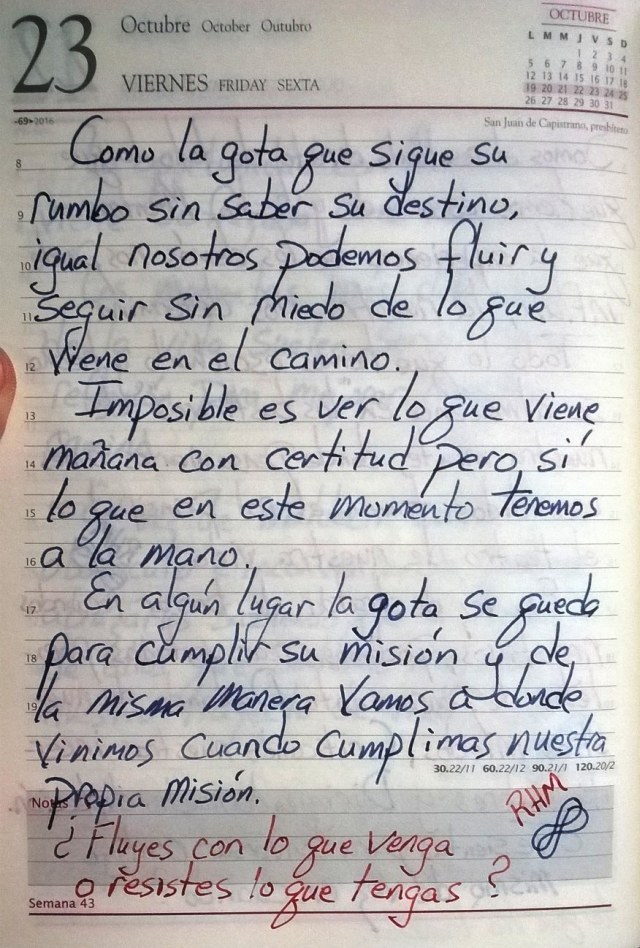 23
Octubre October Outubro
VIERNES FRIDAY SEXTA
OCTUBRE
L M M J V S D
1 2 3 4
5 6 7 8 9 10 11
12 13 14 15 16 17 18
19 20 21 22 23 24 25
26 27 28 29 30 31
-69•2016
San Juan de Capistrano, presbítero
8 Como la gota que sigue su
9 rumbo sin saber su destino,
10 igual nosotros podemos fluir y
11 seguir sin miedo de lo que
12 viene en el camino.
13 Imposible es ver lo que viene
14 mañana con certitud pero sí
15 lo que en este momento tenemos
16 a la mano.
17 En algún lugar la gota se queda
18 para cumplir su misión y de
19 la misma manera vamos a donde
vinimos cuando cumplimas nuestra
30.22/11 60.22/12 90.21/1 120.20/2
Notas propia misión.
RHM
¿Fluyes con lo que venga
o resistes lo que tengas?
Semana 43